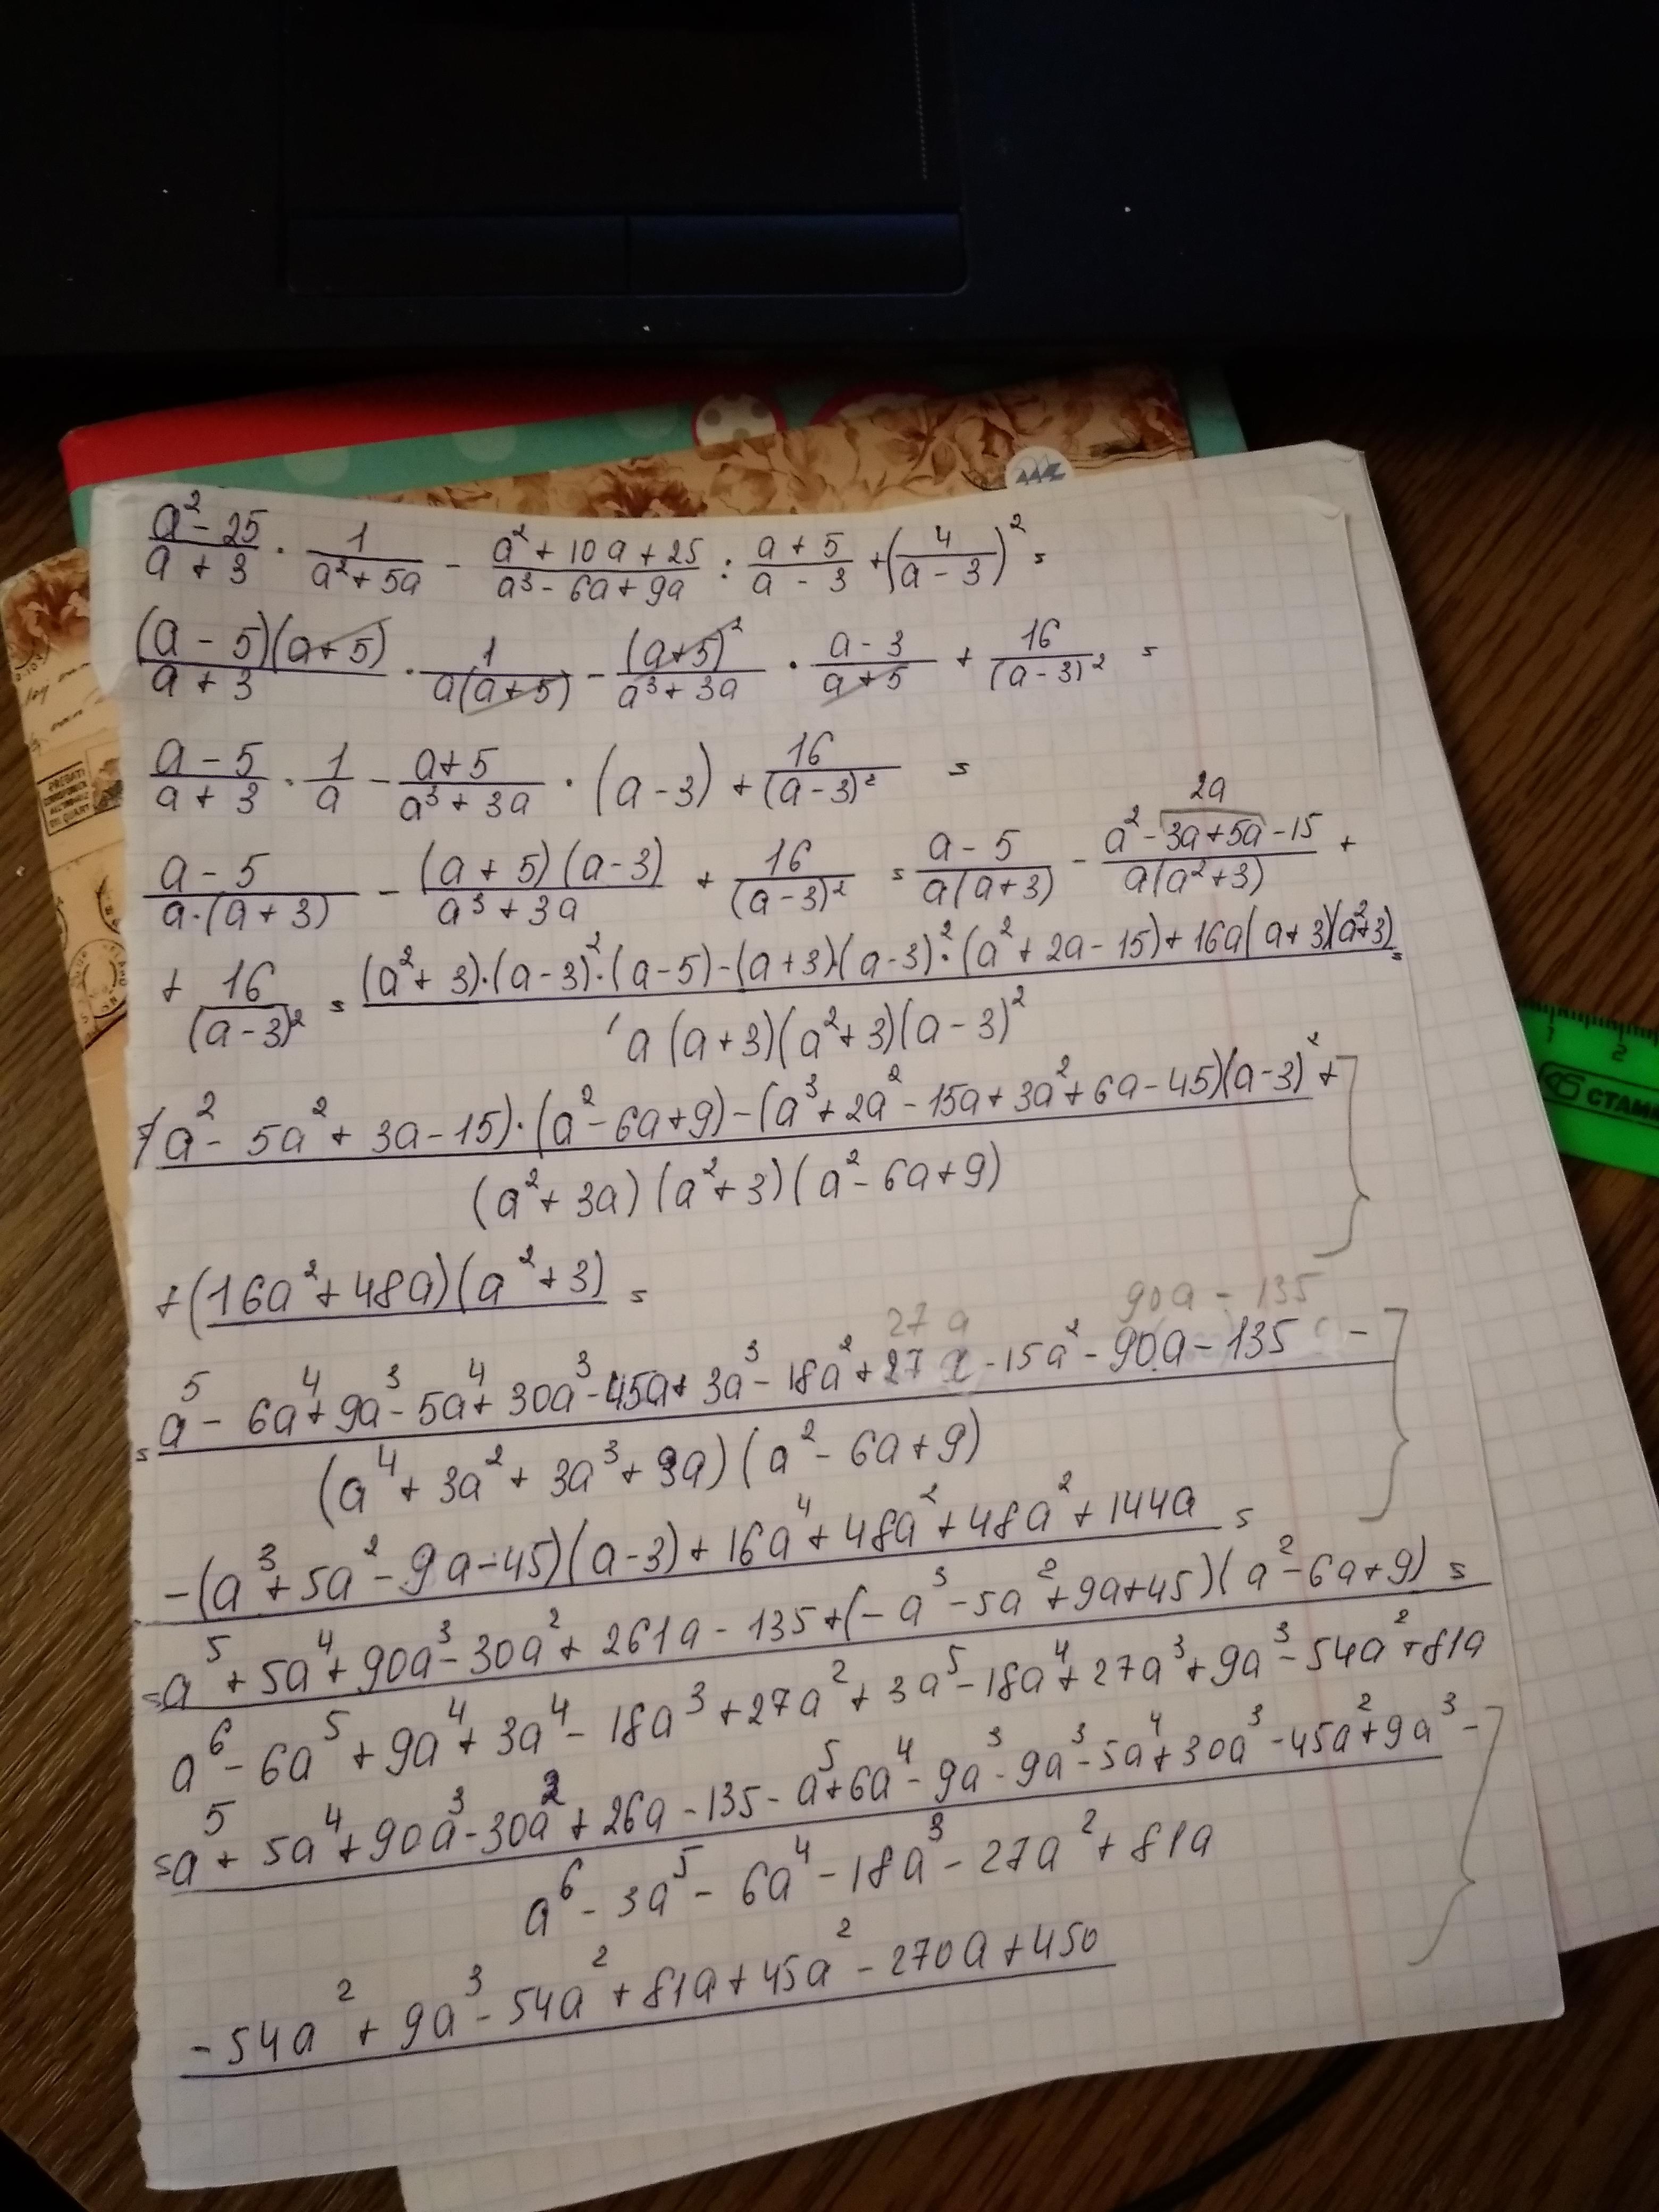 (a² - 25)/(a + 3) · 1/(a² + 5a) - (a² + 10a + 25)/(a³ - 6a + 9a) : (a + 5)/(a - 3) + (4/(a - 3))² =
((a - 5)(a + 5))/(a + 3) · 1/(a(a + 5)) - (a + 5)²/(a³ + 3a) · (a - 3)/(a + 5) + 16/(a - 3)² =
(a - 5)/(a + 3) · 1/a - (a + 5)/(a³ + 3a) · (a - 3) + 16/(a - 3)² =
2a
(a - 5)/(a·(a + 3)) - ((a + 5)(a - 3))/(a³ + 3a) + 16/(a - 3)² = (a - 5)/(a(a + 3)) - (a² - 3a + 5a - 15)/(a(a² + 3)) +
+ 16/(a - 3)² = ((a² + 3)·(a - 3)²·(a - 5) - (a + 3)·(a - 3)²·(a² + 2a - 15) + 16a(a + 3)(a² + 3))/(a(a + 3)(a² + 3)(a - 3)²) =
(a² - 5a² + 3a - 15)·(a² - 6a + 9) - (a³ + 2a² - 15a + 3a² + 6a - 45)(a - 3)² +
(a² + 3a)(a² + 3)(a² - 6a + 9)
+ (16a² + 48a)(a² + 3) =
27a 90a - 135
= a⁵ - 6a⁴ + 9a³ - 5a⁴ + 30a³ - 45a + 3a³ - 18a² + 27a - 15a² - 90a - 135 -
(a⁴ + 3a² + 3a³ + 9a)(a² - 6a + 9)
- (a³ + 5a² - 9a - 45)(a - 3) + 16a⁴ + 48a² + 48a² + 144a =
= a⁵ + 5a⁴ + 90a³ - 30a² + 261a - 135 + (-a³ - 5a² + 9a + 45)(a² - 6a + 9) =
a⁶ - 6a⁵ + 9a⁴ + 3a⁴ - 18a³ + 27a² + 3a⁵ - 18a⁴ + 27a³ + 9a³ - 54a² + 81a
= a⁵ + 5a⁴ + 90a³ - 30a² + 26a - 135 - a⁵ + 6a⁴ - 9a³ - 9a³ - 5a⁴ + 30a³ - 45a² + 9a³ -
a⁶ - 3a⁵ - 6a⁴ - 18a³ - 27a² + 81a
- 54a² + 9a³ - 54a² + 81a + 45a² - 270a + 450
1 2
СТАММ